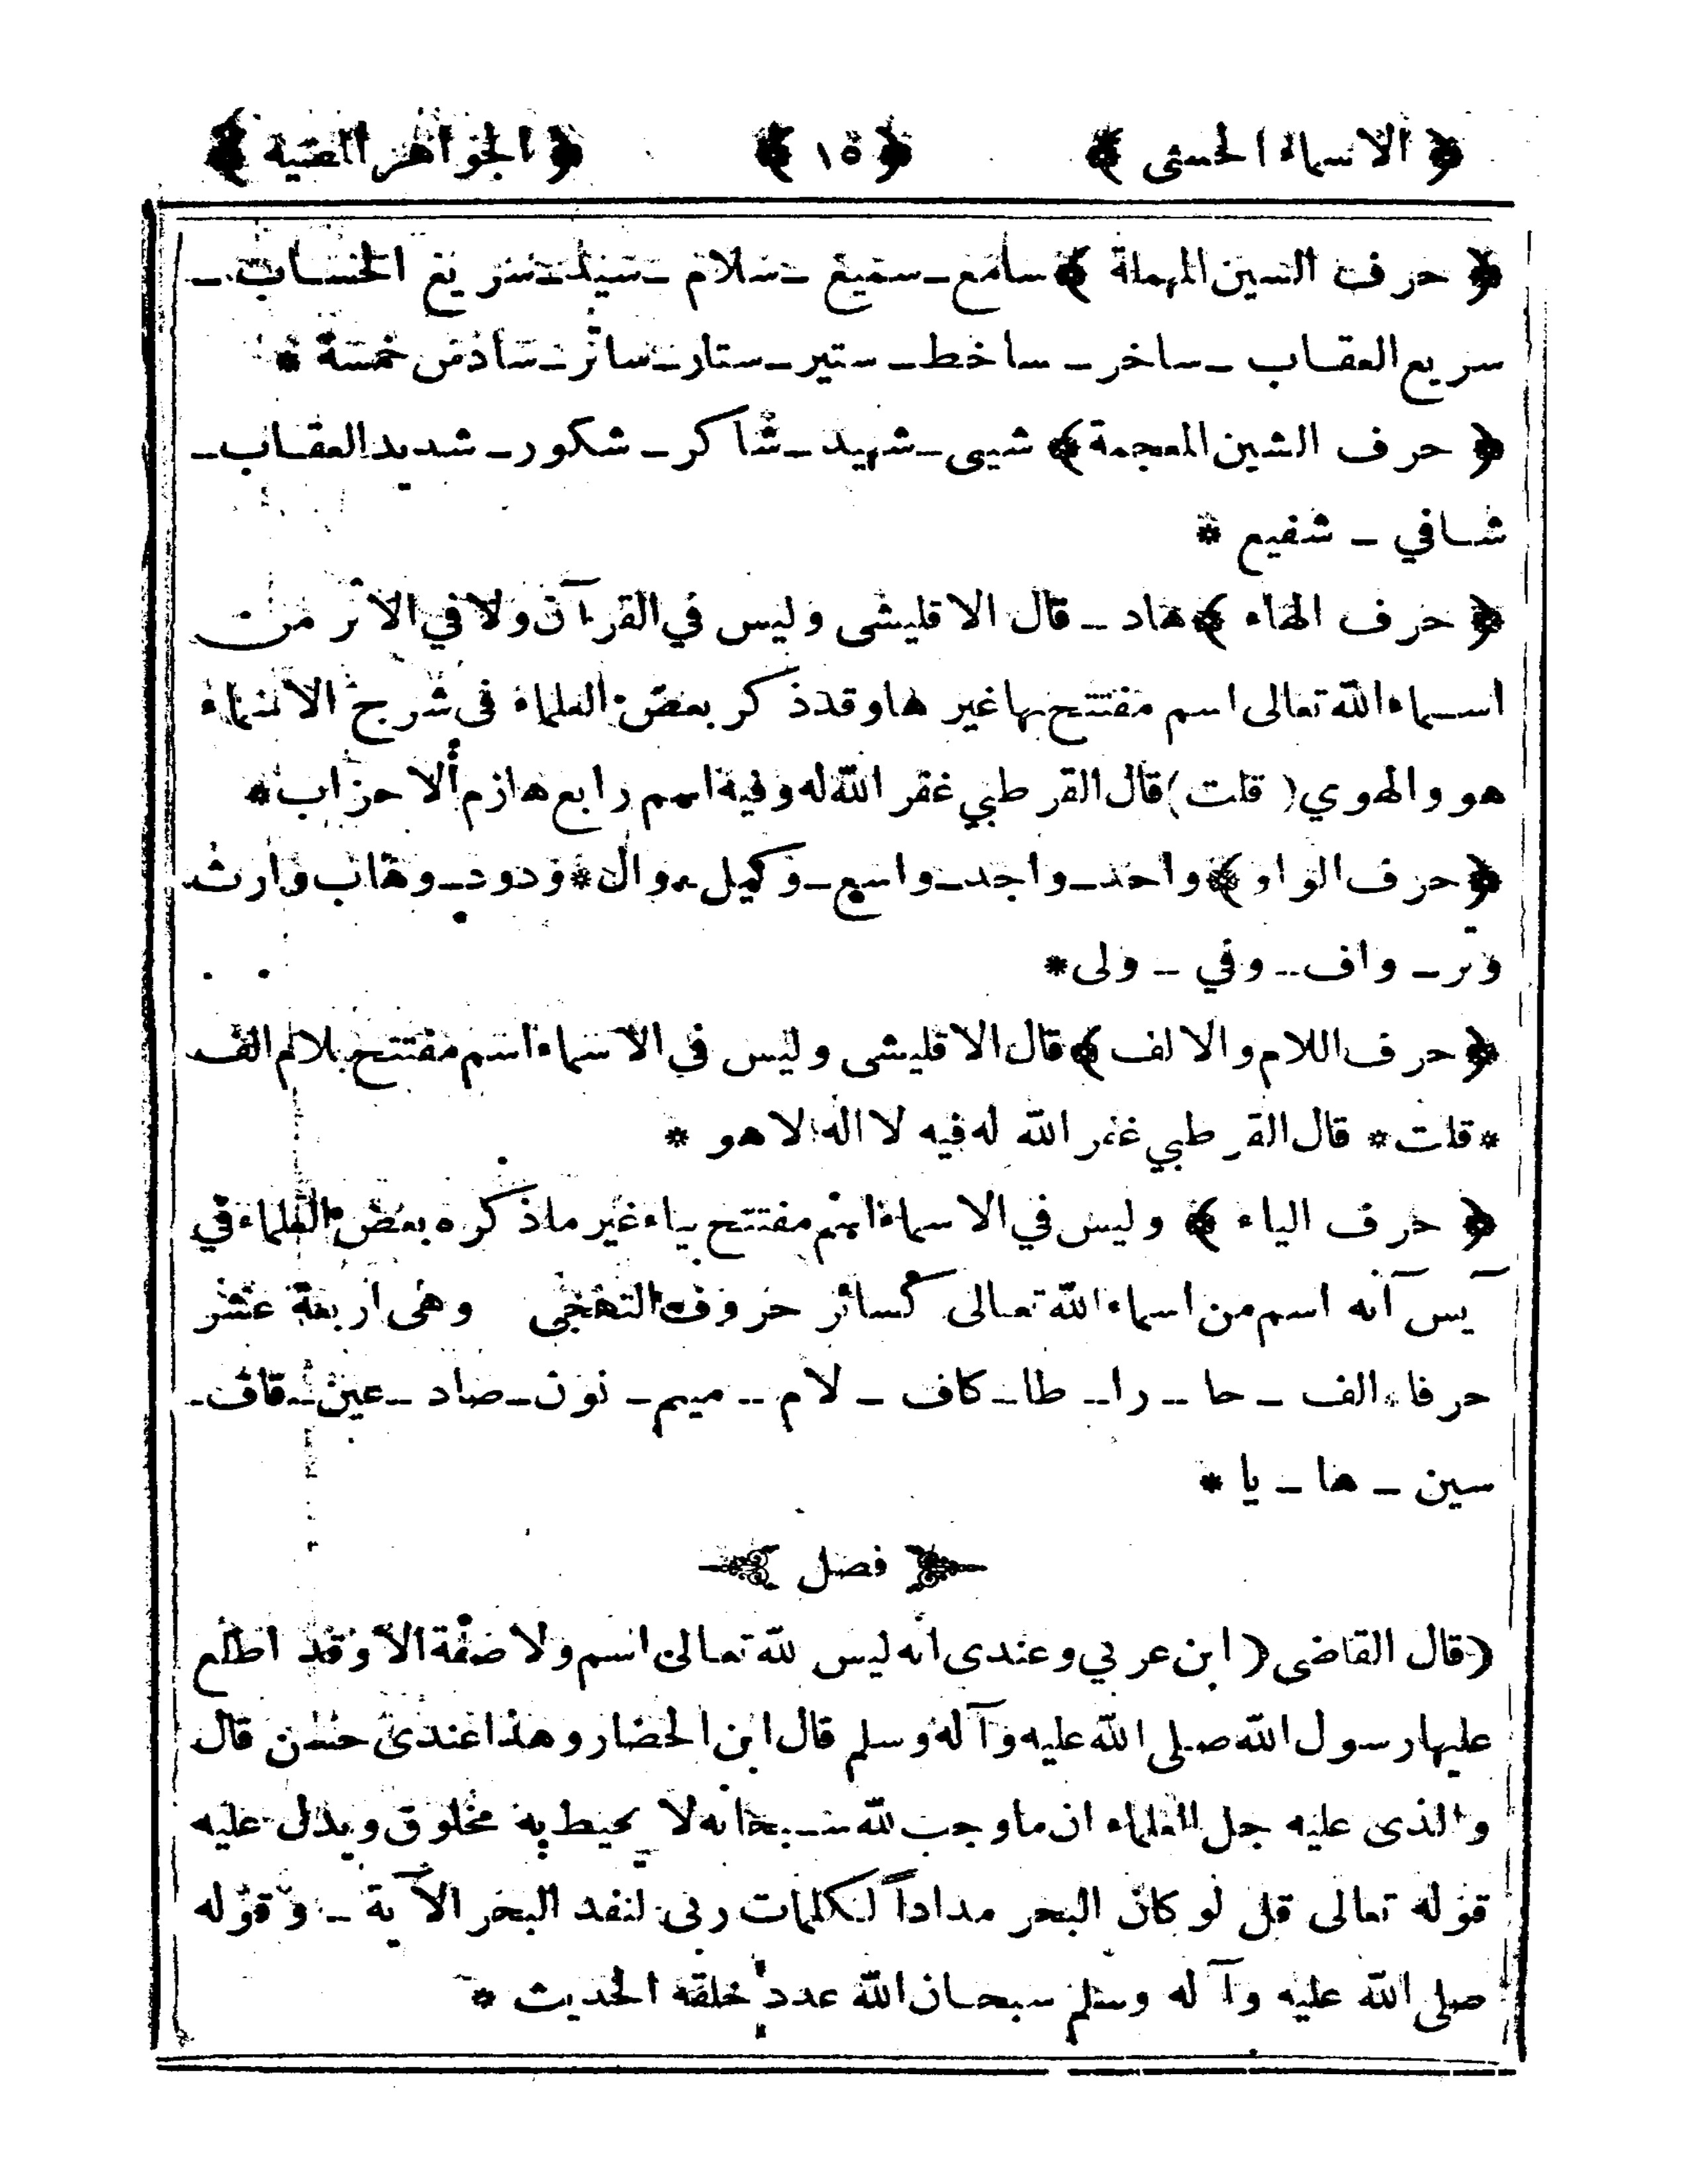 ﴿ الاسماء الحسنى ﴾ ﴿ ١٥ ﴾ ﴿ الجواهر المضية ﴾
﴿ حرف السين المهملة ﴾ سامع ـ سميع ـ سلام ـ سيد ـ سريع الحساب ـ
سريع العقاب ـ ساخر ـ ساخط ـ ستير ـ ستار ـ ساتر ـ سادس خمسة *
﴿ حرف الشين المعجمة ﴾ شيى ـ شهيد ـ شاكر ـ شكور ـ شديد العقاب ـ
شافي ـ شفيع *
﴿ حرف الهاء ﴾ هاد ـ قال الاقليشى وليس في القرآن ولا في الاثر من
اسماء الله تعالى اسم مفتتح بها غير ها وقد ذكر بعض العلماء فى شرح الاسماء
هو والهوي ( قلت ) قال القرطبي غفر الله له وفيه اسم رابع هازم ألاحزاب *
﴿ حرف الواو ﴾ واحد ـ واجد ـ واسع ـ وكيل ـ وال * ودود ـ وهاب وارث
وتر ـ واف ـ وفي ـ ولى *
﴿ حرف اللام والالف ﴾ قال الاقليشى وليس في الاسماء اسم مفتتح بلام الف
* قلت * قال القرطبي غفر الله له فيه لا اله الا هو *
﴿ حرف الياء ﴾ وليس في الاسماء اسم مفتتح بياء غير ما ذكره بعض العلماء في
يس آنه اسم من اسماء الله تعالى كسائر حروف التهجى وهى اربعة عشر
حرفا ـ الف ـ حا ـ را ـ طا ـ كاف ـ لام ـ ميم ـ نون ـ صاد ـ عين ـ قاف ـ
سين ـ ها ـ يا *
فصل
( قال القاضى ( ابن عربي وعندى انه ليس لله تعالى اسم ولا صفة الا وقد اطلع
عليها رسول الله صلى الله عليه وآله وسلم قال ابن الحضار وهذا عندى حسن قال
والذى عليه جل العلماء ان ما وجب لله سبحانه لا يحيط به مخلوق ويدل عليه
قوله تعالى قل لو كان البحر مداداً لكلمات ربى لنفد البحر الآية ـ وقوله
صلى الله عليه وآله وسلم سبحان الله عدد خلقه الحديث *